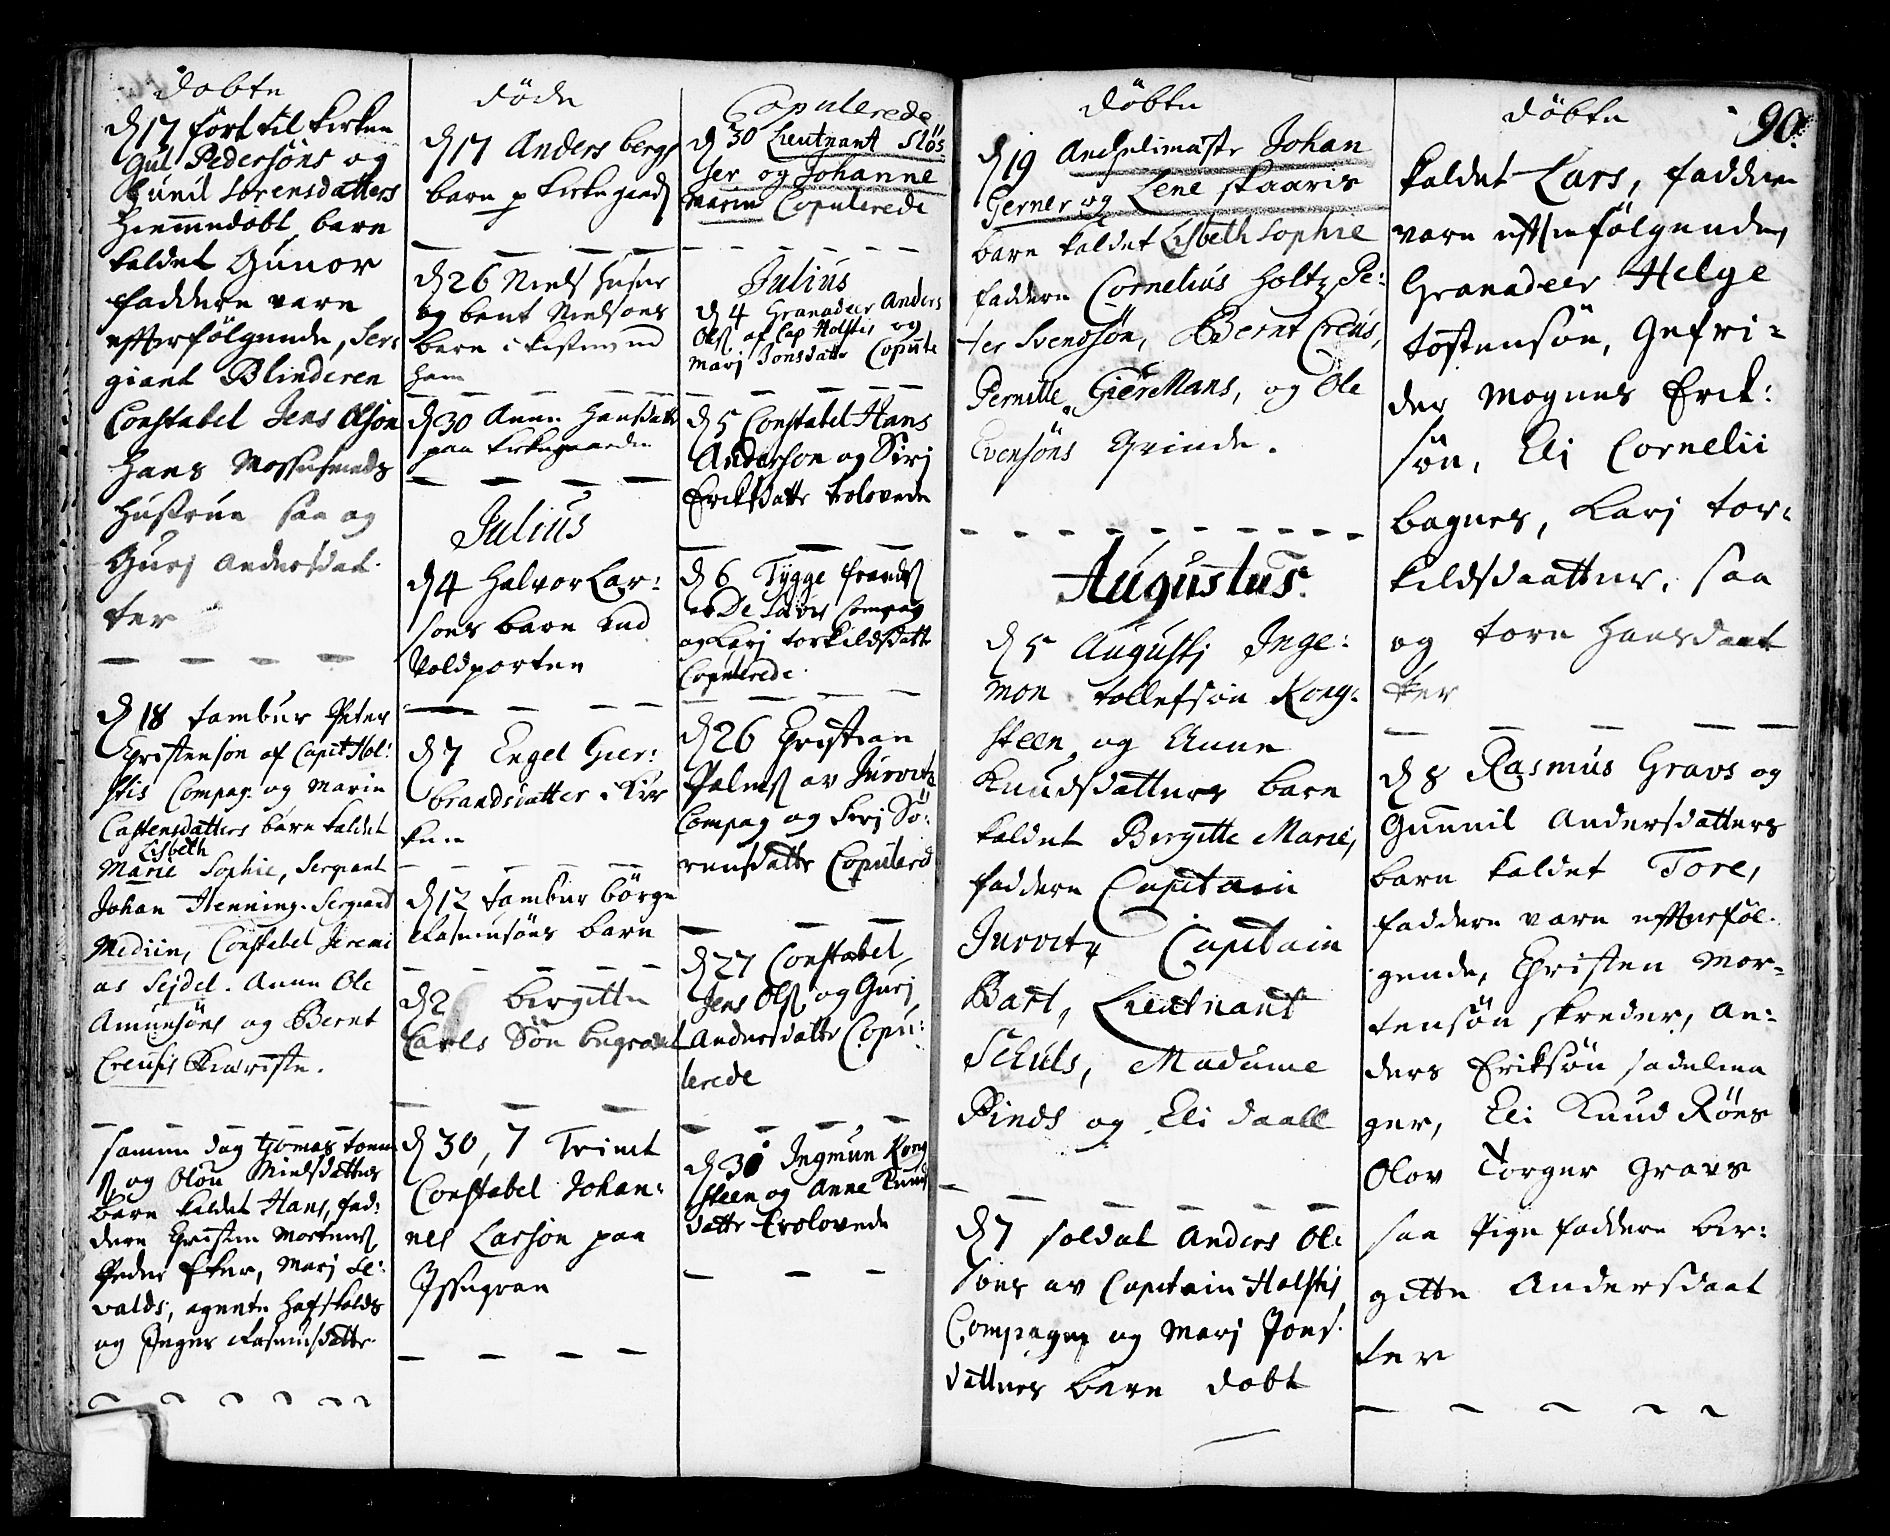 Døbte
d 17 fört til Kirken
Gul Pedersøns og
Gunil Sörensdatters
hiemmedøbt barn
kaldet Gunor
faddere vare
efterfölgende, Ser:
giant Blinderen
Constabel Jens Olson
Hans
hustrue saa og
Gurj Andersdat
ter
d 18 tambur Peter
Christenson af Capit Hol:
stis Compag. og Marin
Castensdatters barn kaldet
Lisbeth
Marie Sophie, Sergiant
Johan Henning. Sergiand
Mediin, Constabel Jeremi
as Sejdel. Anne Ole
Amunsöns og Bernt
Creusis
samme dag Thomas
og Olou Nielsdatters
barn kaldet Hans, fad:
dere Christen Mortens
Peder Eker, Marj Se:
valds, agnete
og Inger Rasmusdatter
døde
d 17 Anders bergs
barn p Kirkegaard
d 26 Niels
og bent Nielsons
barn i
ham
d 30 Anne Hansdatter
paa Kirkegaarden
Julius
d 4 Halvor Lar:
sons barn ved
Voldporten
d 7 Engel Gier:
brandsdatter i Kir
ken
d 12 tambur börge
Rasmusöns barn
d 26 birgitte
Carls Sön begravet
d 30, 7 Trimt
Constabel Johan:
nes Larson paa
Issegran
Copulerede
d 30 Lieutnant Slös:
ser og Johanne
Marie Copulerede
Julius
d 4 Granadeer Anders
Ols af Cap Holstis og
Marj Jonsdatter Copule
d 5 Constabel Hans
Anderson og Sirj
Eriksdatter trolovede
d 6 Tygge frands
Compag
og Karj torkildsdatter
Copulerede
d 26 Christian
Palms av Jurvitz
Compag og Kirj Sö:
rensdatter Copulered
d 27 Constabel
Jens Ols og Gurj
Andersdatter Copu:
lerede
d 30 Ingmun Kong
steen og Anne Knuds
datter Trolovede
Döbte
d 19 Anchelimaster Johan
Gerner og Lene skaaris
barn kaldet Lisbeth Sophie
faddere Cornelius Holtz Pe:
ter Svendsön, Bernt Creus,
Pernille Gier Mans, og Ole
Evensöns Qvinde.
Augustus.
d 5 Augustj Inge:
mon tollefsön Kong:
steen og Anne
Knudsdatters barn
kaldet Birgitte Marie,
faddere Capitain
Jurvitz Capitain
Bart, Lieutnant
Schuls, Madame
Pinds og Eli daall
d 7 soldat Anders Ol:
sons av Capitain Holstis
Compagni og Marj Jons
datters barn døbt
Döbte
90.
kaldet Lars, faddere
vare efterfölgende,
Granadeer Helge
tostensön, Gefri-
der Mognus Erik:
søn, Eli Cornelii
bagers, Karj tor:
kildsdaatter, saa
og torn Hansdaat
ter
d 8 Rasmus Gravs og
Gunnil Andersdatters
barn kaldet Tore,
faddere vare efterföl.
gende, Christen Mor-
tensön skreder, An:
ders Eriksön sadelma
ger, Eli Knud Röers
Olov Torger Gravs
saa Pige faddere bir:
gitte Andersdaat
ter